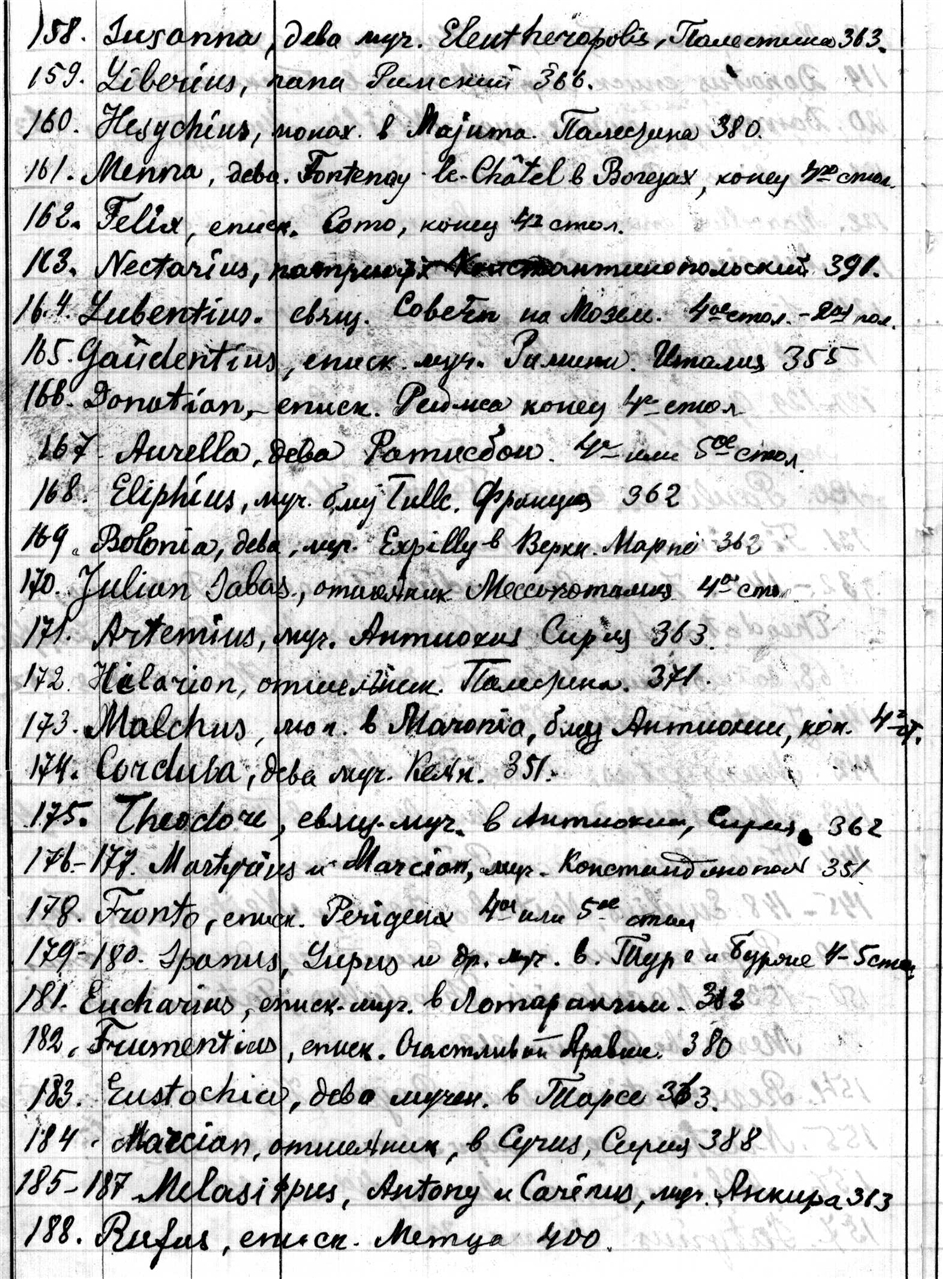 158. Susanna, дева муч. Eleutheropolis, Палестина 363.
159. Liberius, папа Римский 366.
160. Hesychius, монах. в Majuma. Палестина 380.
161. Menna, дева. Fontenoy-le-Châtel в Вогезах, конец 4го стол.
162. Felix, еписк. Сото, конец 4го стол.
163. Nectarius, патриарх Константинопольский 391.
164. Lubentius. свящ. на Мозеле. 4ое стол.
165. Gaudentius, еписк. муч. Римини. Италия 355
166. Donatian, еписк. Реймса конец 4го стол
167. Aurella, дева Ратисбон. 4ое или 5ое стол.
168. Eliphius, муч. близ Tulle. Франция 362
169. Bolonia, дева, муч. Expilly в Верхн. Марне 362
170. Julian Sabas, отшельник Мессопотамия 4ое сто.
171. Artemius, муч. Антиохия Сирия 363.
172. Hilarion, отшельник. Палестина. 371.
173. Malchus, мон. в Maronia, близ Антиохии, кон. 4го ст.
174. Corduba, дева муч. Кельн. 351.
175. Theodore, свящ. муч. в Антиохии, Сирия. 362
176-177. Martyrius и Marcian, муч. Константинополь 351
178. Fronto, еписк. Perigeux 4ое или 5ое стол
179-180. Spanus, Lupus и др. муч. в. Туре и Бурже 4-5 стол
181. Eucharius, еписк. муч. в Лотарингии. 362
182. Frumentius, еписк. Счастливой Аравии. 380
183. Eustochia, дева мучен. в Тарсе 363.
184. Marcian, отшельник, в Cyrus, Сирия 388
185-187 Melasippus, Antony и Carinus, муч. Анкира 363
188. Rufus, еписк. Метца 400.